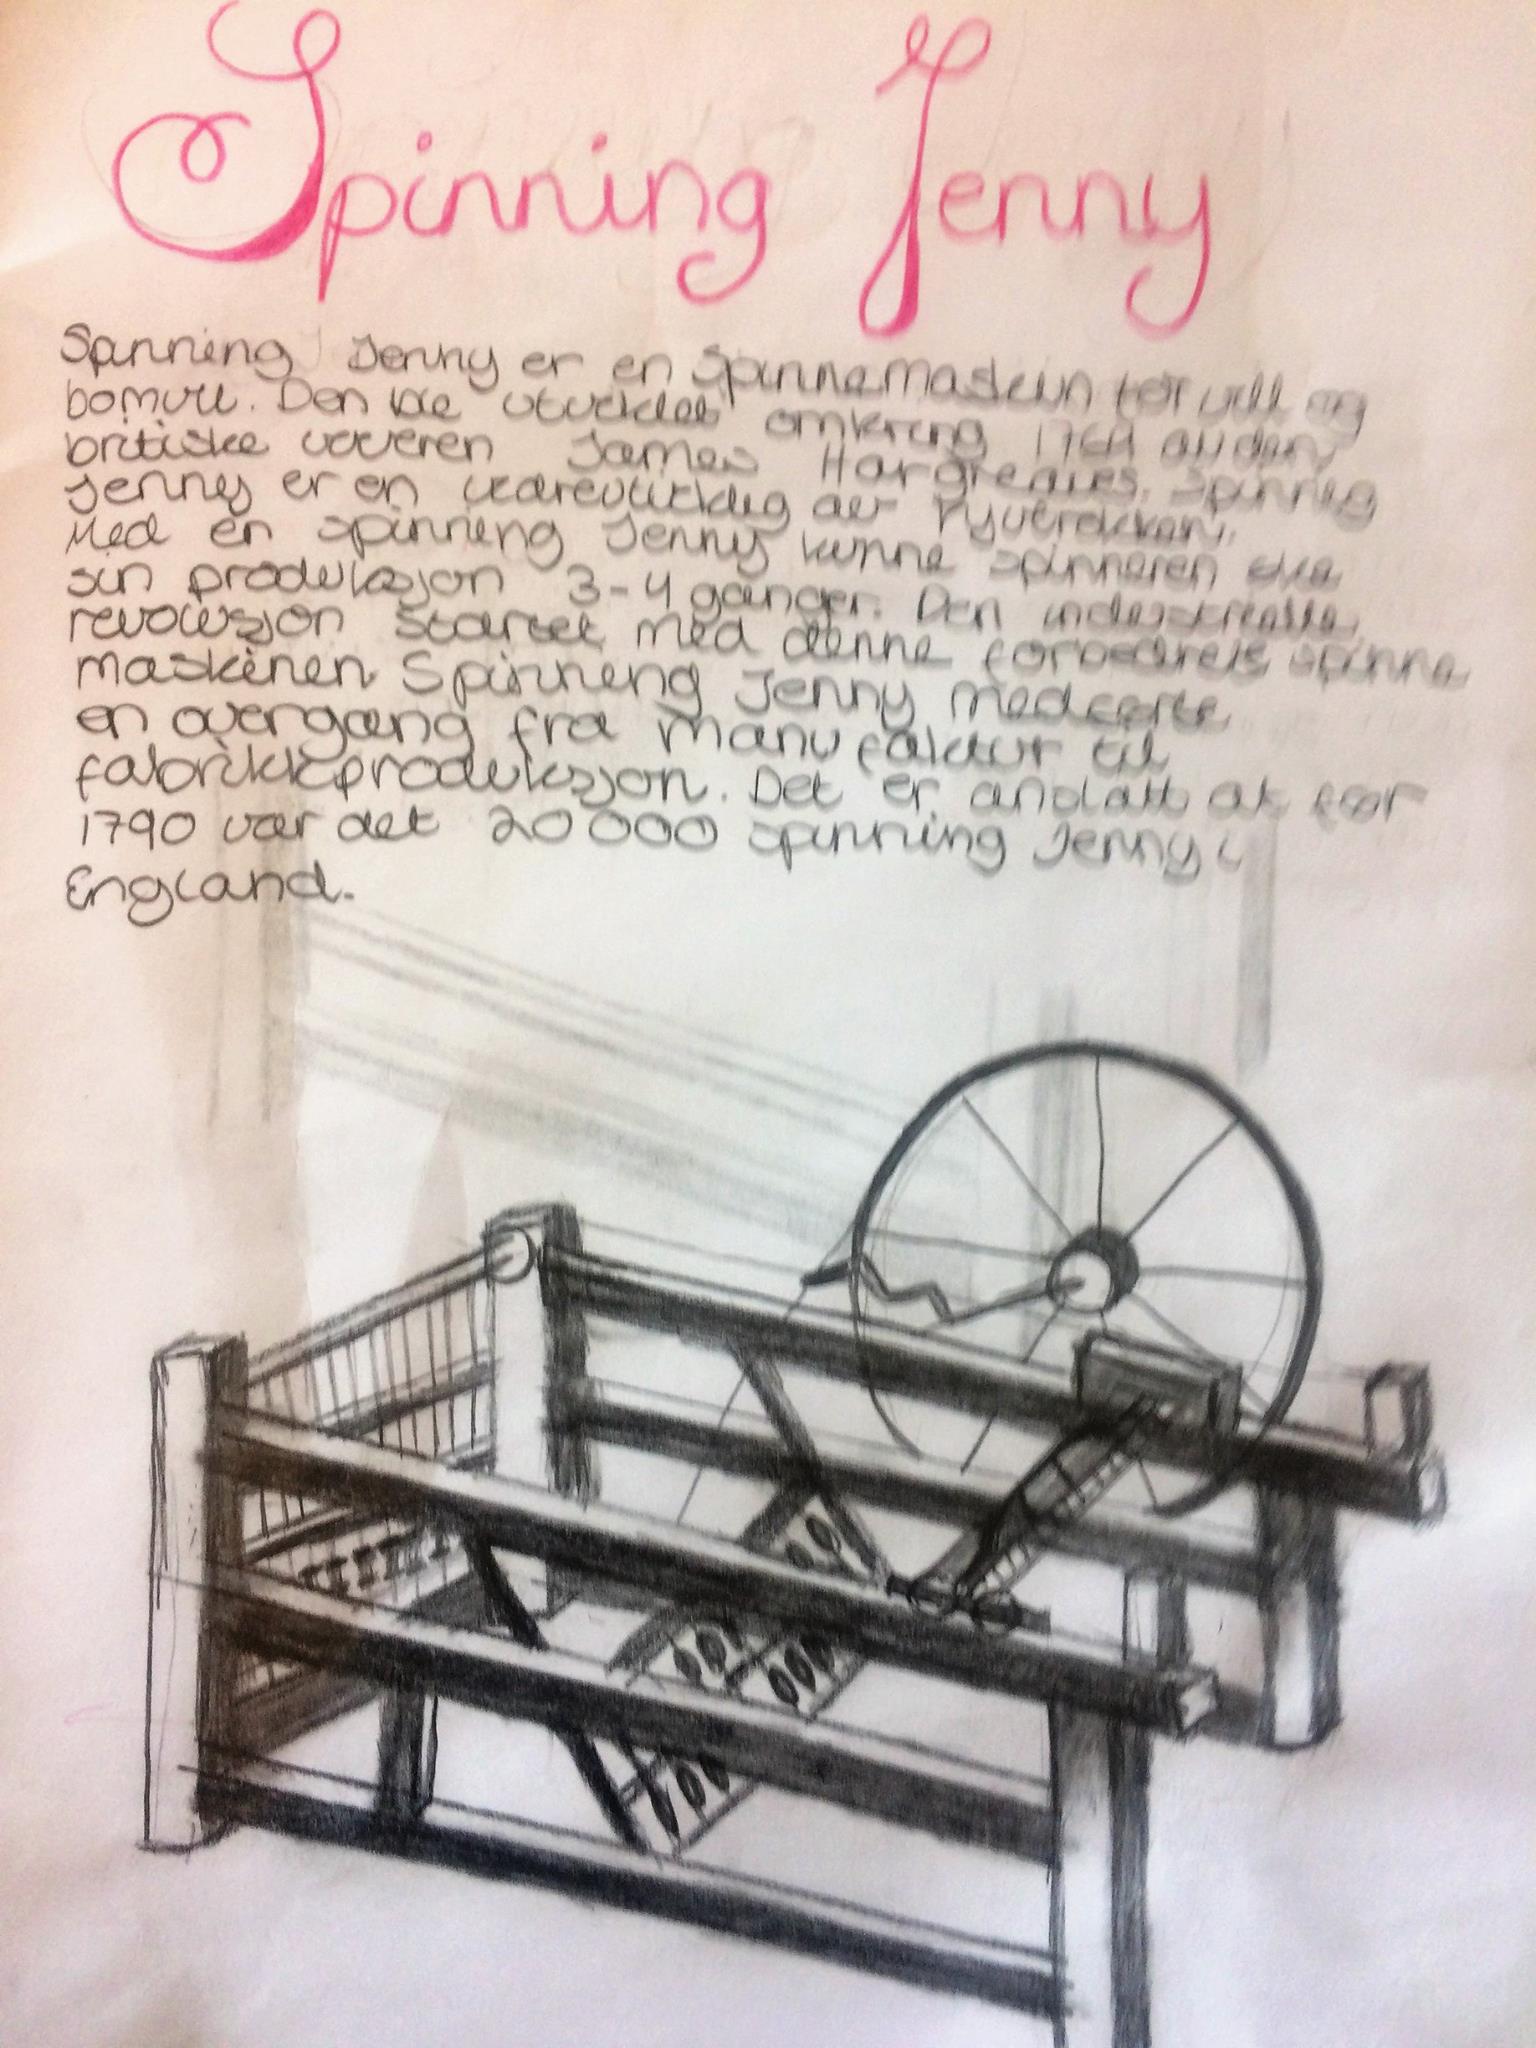 Spinning Jenny
Spinning Jenny er en Spinnemaskin for ull og
bomull. Den ble utviklet omkring 1764 av den
britiske veveren James Hargreaves. Spinning
Jenny er en videreutvikling av
Med en spinning Jenny kunne spinneren øke
sin produksjon 3-4 ganger. Den industrielle
revolusjon startet med denne forbedrete spinne
maskinen Spinning Jenny medførte
en overgang fra manufaktur til
fabrikkproduksjon. Det er anslått at før
1790 var det 20 000 spinning Jenny i
England.